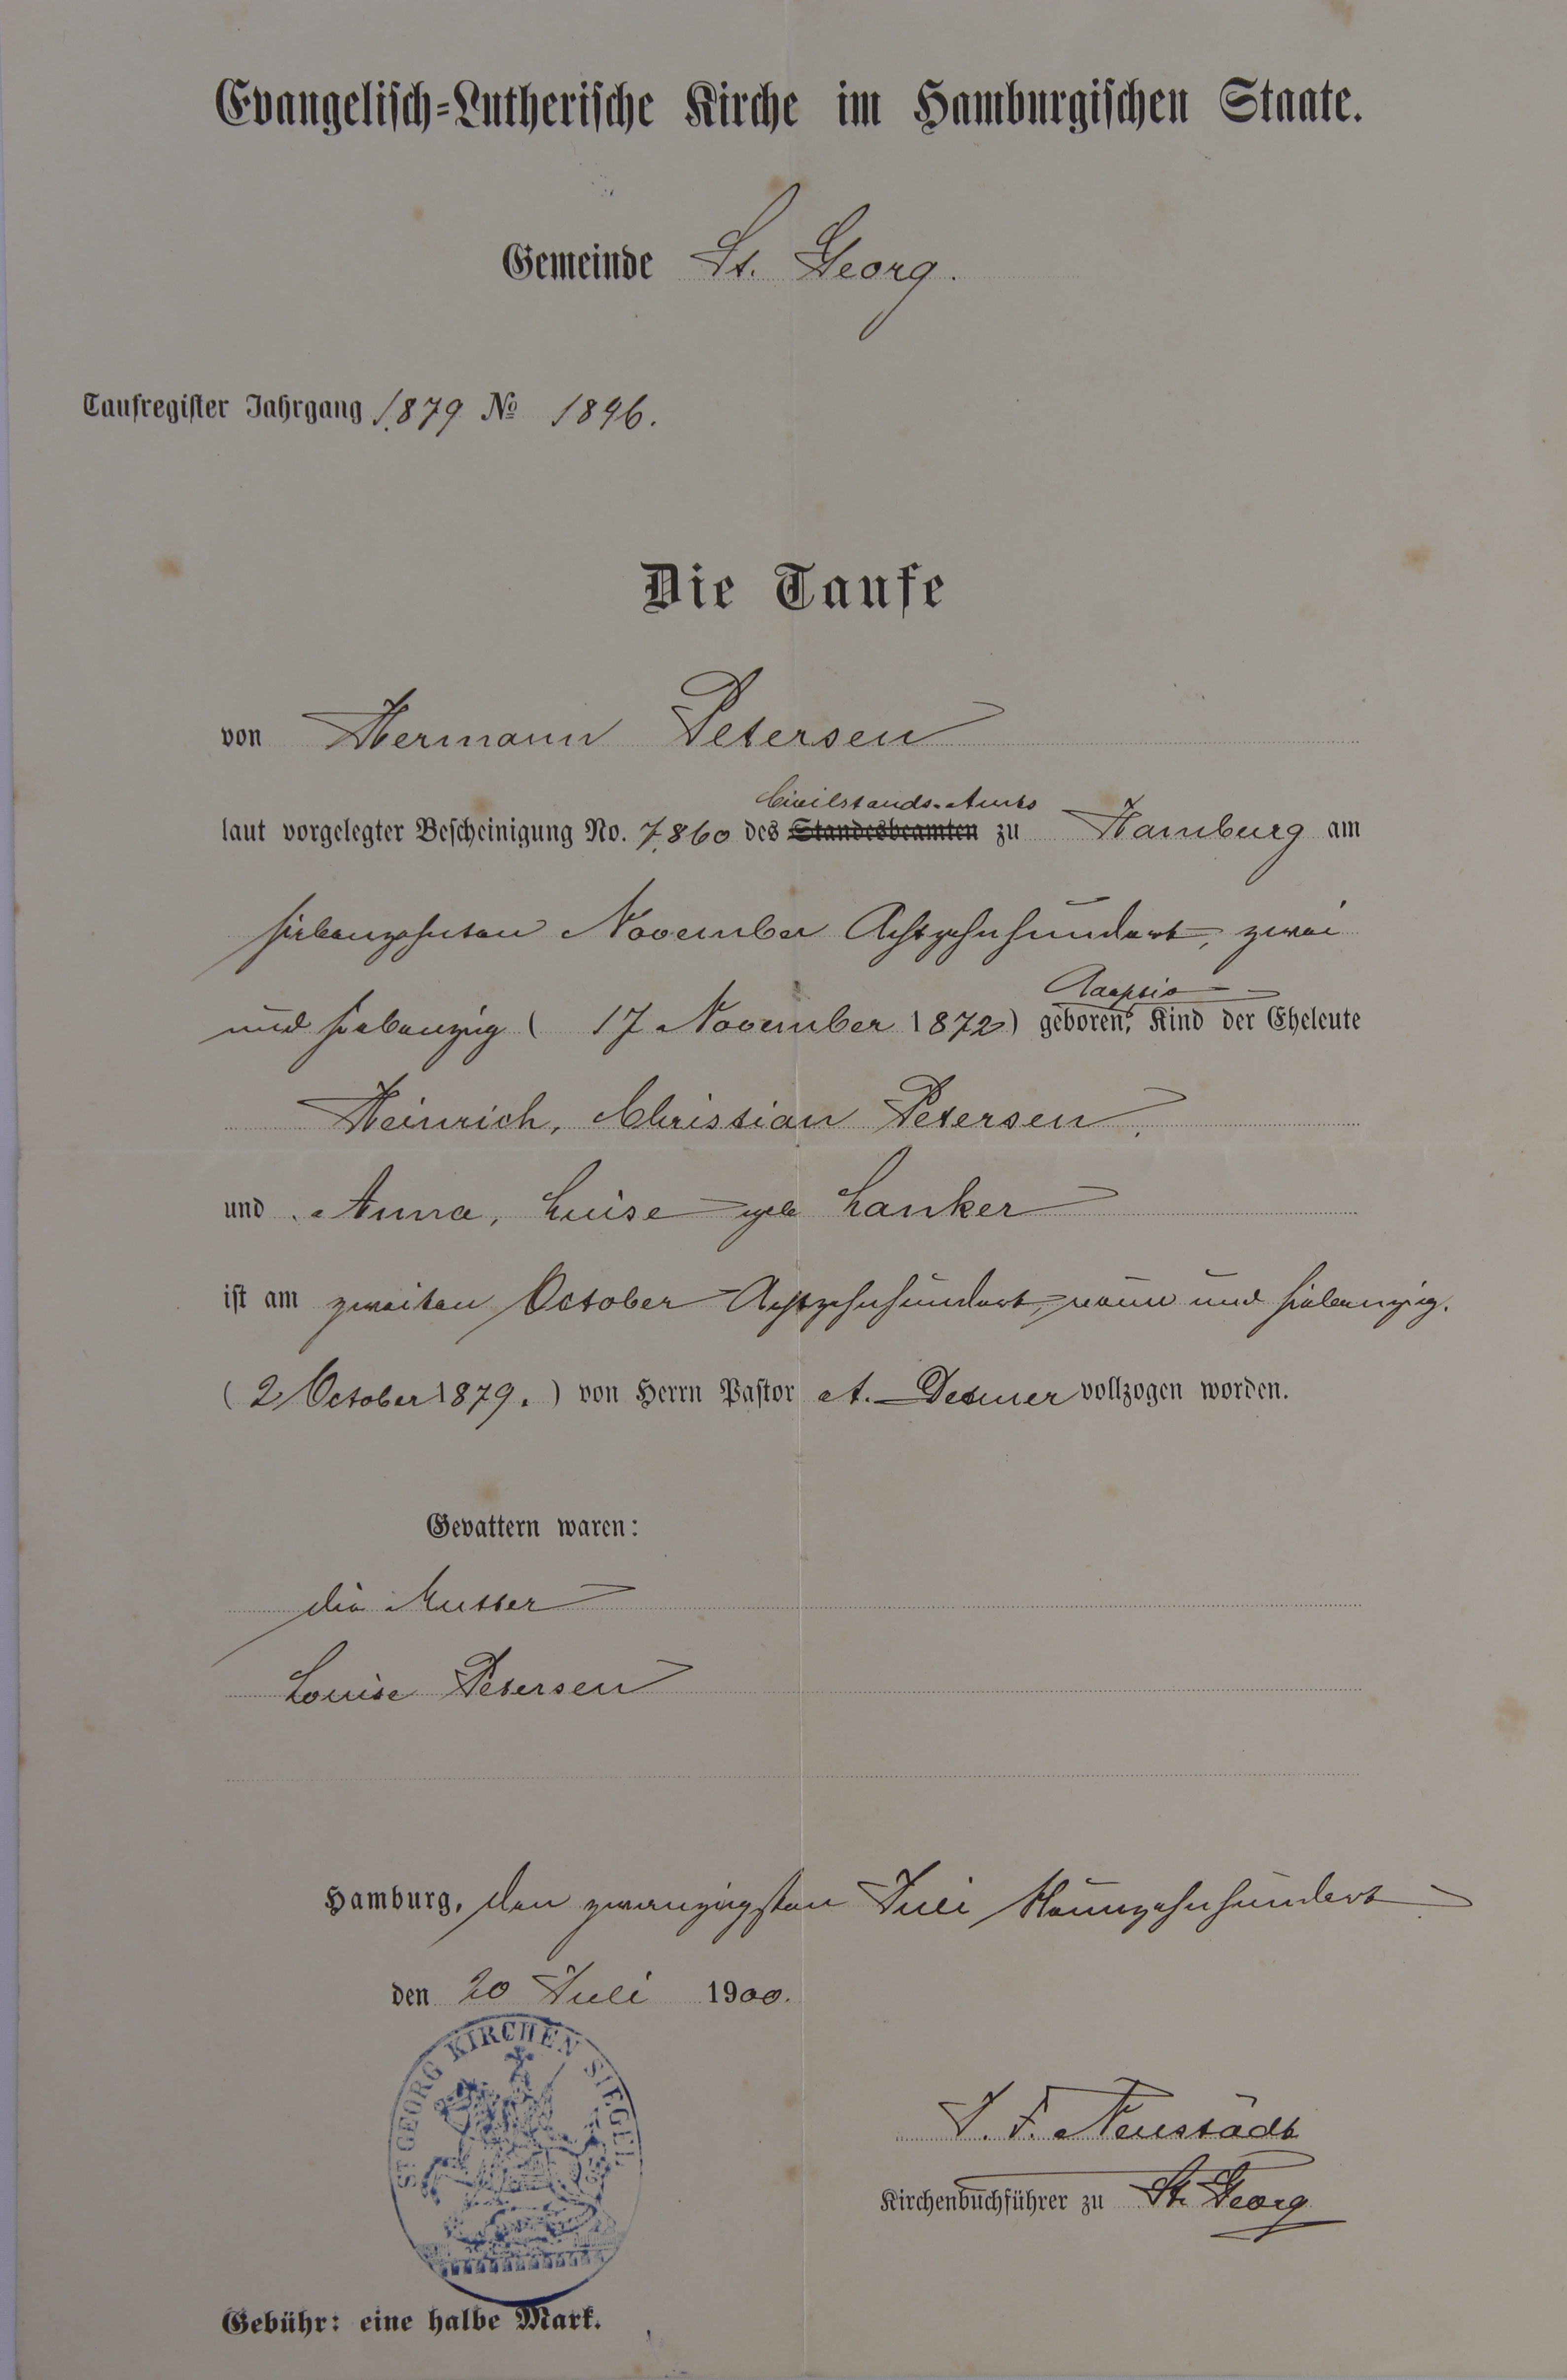 Evangelisch-Lutherische Kirche im Hamburgischen Staate.
Gemeinde St. Georg.
Taufregister Jahrgang 1879 № 1896.
Die Taufe
von Hermann Petersen
Civilstands-Amts
laut vorgelegter Bescheinigung No. 7860 des Standesbeamten zu Hamburg am
siebenzehnten November Achtzehnhundert, zwei
und siebenzig ( 17 November 1872) geboren, Kind der Eheleute
Heinrich, Christian Petersen.
und Anna, Luise geb Lanker
ist am zweiten October Achtzehnhundert, neun und siebenzig.
( 2 October 1879. ) von Herrn Pastor A. vollzogen worden.
Gevattern waren:
die Mutter
Louise Petersen
Hamburg, den zwanzigsten Juli Neunzehnhundert
den 20 Juli 1900.
ST GEORG KIRCHEN SIEGEL
J. F. Neustädt
Kirchenbuchführer zu St. Georg
Gebühr: eine halbe Mark.